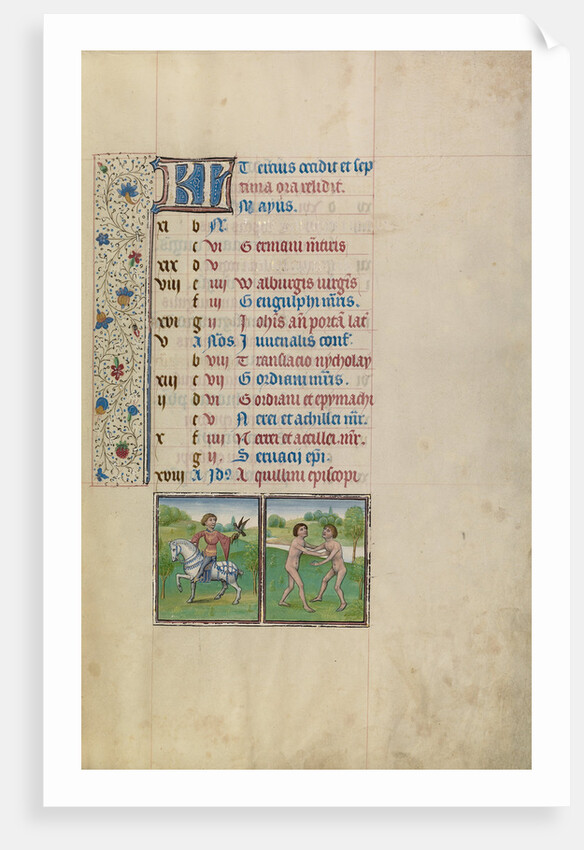 KL Tercius occidit et sep
tima ora relidit.
Mayus.
xi b N.
c vi Germani m̄tiris
xix d v
viii e iiii Walburgis virgīs
f iii Gengulphi mr̄is.
xvi g ii Iohīs an̄ portā lat̄
v A Nōs. Iuvenalis conf̄.
b viii Translacio nycholay
xiii c vii Gordiani mr̄is.
ii d vi Gordiani et epymachi
e v Nerei et achillei mr̄.
x f iiii Nerei et accillei mr̄.
g ii. Servacij ep̄i.
xviii A Id9 Aquillini episcopi